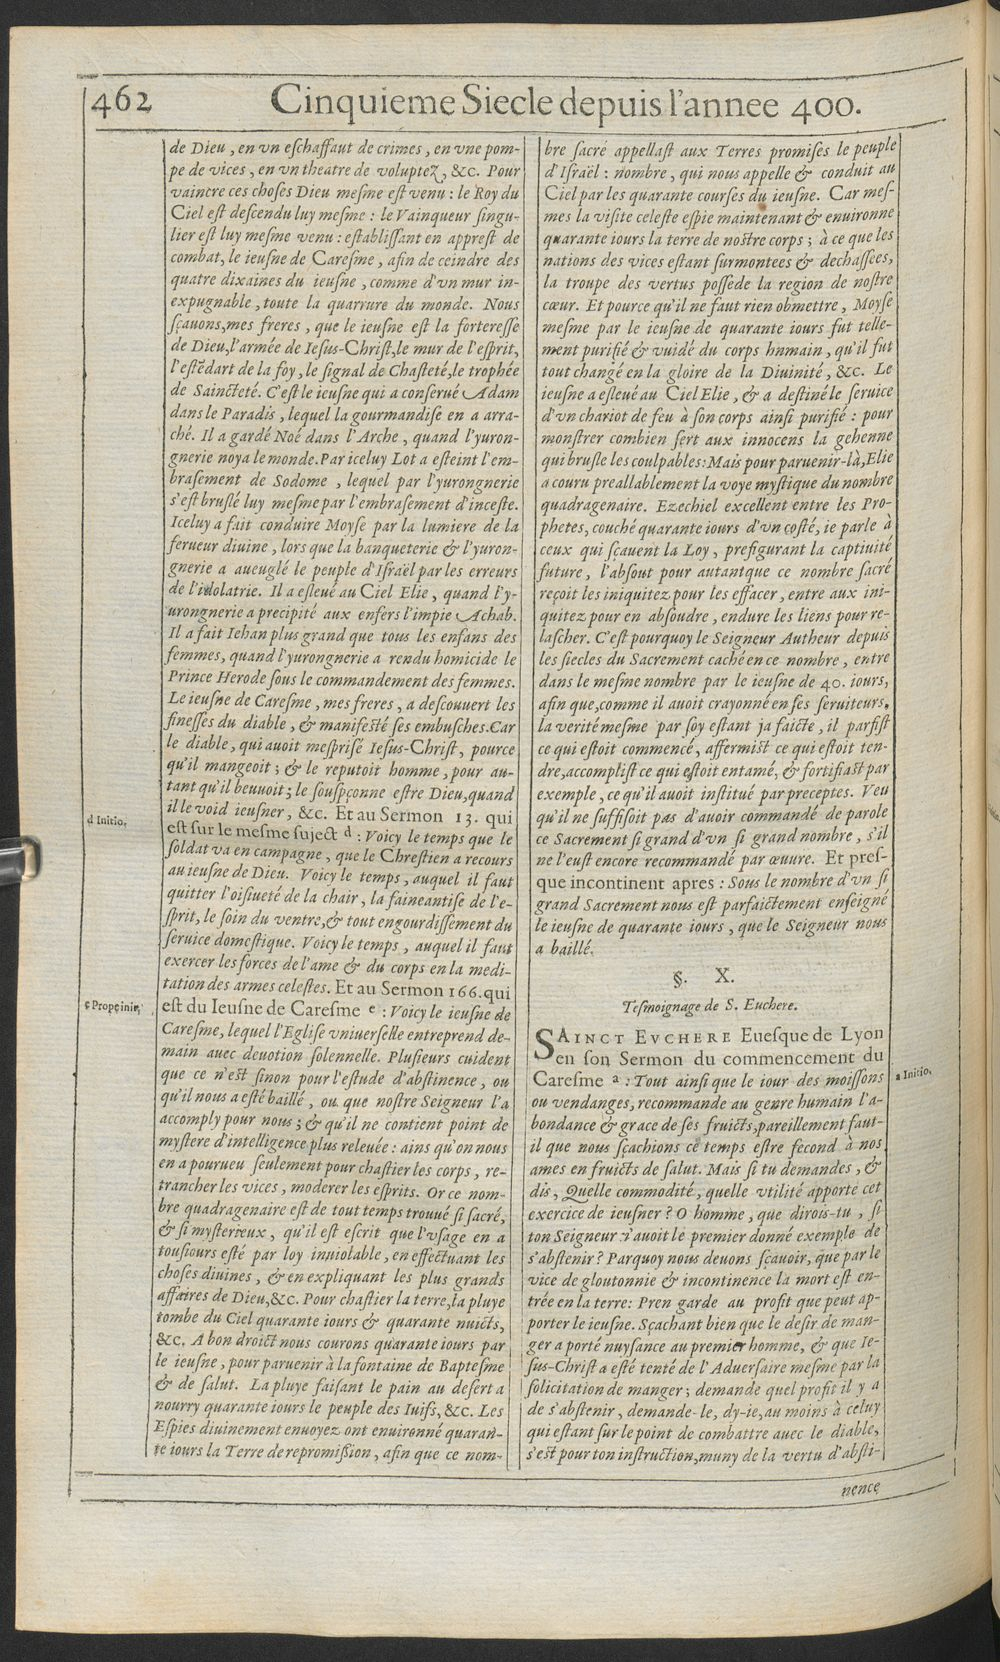 462
Cinquieme Siecle depuis l'annee 400.
de Dieu, en vn eschaffaut de crimes, en vne pom-
pe de vices, en vn theatre de voluptez, &c. Pour
vaincre ces choses Dieu mesme est venu : le Roy du
Ciel est descendu luy mesme : le Vainqueur singu-
lier est luy mesme venu : establissant en apprest de
combat, le ieusne de Caresme, afin de ceindre des
quatre dixaines du ieusne, comme d'vn mur in-
expugnable, toute la quarrure du monde. Nous
sçauons, mes freres, que le ieusne est la forteresse
de Dieu, l'armée de Iesus-Christ, le mur de l'esprit,
l'estẽdart de la foy, le signal de Chasteté, le trophée
de Saincteté. C'est le ieusne qui a conserué Adam
dans le Paradis, lequel la gourmandise en a arra-
ché. Il a gardé Noé dans l'Arche, quand l'yuron-
gnerie noya le monde. Par iceluy Lot a esteint l'em-
brasement de Sodome, lequel par l'yurongnerie
s'est bruslé luy mesme par l'embrasement d'inceste.
Iceluy a fait conduire Moyse par la lumiere de la
ferueur diuine, lors que la banqueterie & l'yuron-
gnerie a aueuglé le peuple d'Israël par les erreurs
de l'idolatrie. Il a esleué au Ciel Elie, quand l'y-
urongnerie a precipité aux enfers l'impie Achab.
Il a fait Iehan plus grand que tous les enfans des
femmes, quand l'yurongnerie a rendu homicide le
Prince Herode sous le commandement des femmes.
Le ieusne de Caresme, mes freres, a descouuert les
finesses du diable, & manifesté ses embusches. Car
le diable, qui auoit mesprisé Iesus-Christ, pource
qu'il mangeoit ; & le reputoit homme, pour au-
tant qu'il beuuoit ; le souspçonne estre Dieu, quand
il le void ieusner, &c. Et au Sermon 13. qui
est sur le mesme suject d : Voicy le temps que le
soldat va en campagne, que le Chrestien a recours
au ieusne de Dieu. Voicy le temps, auquel il faut
quitter l'oisiueté de la chair, la faineantise de l'e-
sprit, le soin du ventre, & tout engourdissement du
seruice domestique. Voicy le temps, auquel il faut
exercer les forces de l'ame & du corps en la medi-
tation des armes celestes. Et au Sermon 166. qui
est du Ieusne de Caresme e : Voicy le ieusne de
Caresme, lequel l'Eglise vniuerselle entreprend de-
main auec deuotion solennelle. Plusieurs cuident
que ce n'est sinon pour l'estude d'abstinence, ou
qu'il nous a esté baillé, ou que nostre Seigneur l'a
accomply pour nous ; & qu'il ne contient point de
mystere d'intelligence plus releuée : ains qu'on nous
en a pourueu seulement pour chastier les corps, re-
trancher les vices, moderer les esprits. Or ce nom-
bre quadragenaire est de tout temps trouué si sacré,
& si mysterieux, qu'il est escrit que l'vsage en a
tousiours esté par loy inuiolable, en effectuant les
choses diuines, & en expliquant les plus grands
affaires de Dieu, &c. Pour chastier la terre, la pluye
tombe du Ciel quarante iours & quarante nuicts,
&c. A bon droict nous courons quarante iours par
le ieusne, pour paruenir à la fontaine de Baptesme
& de salut. La pluye faisant le pain au desert a
nourry quarante iours le peuple des Iuifs, &c. Les
Espies diuinement enuoyez ont enuironné quaran-
te iours la Terre de repromission, afin que ce nom-
d Initio.
e Prope inir.
bre sacré appellast aux Terres promises le peuple
d'Israël : nombre, qui nous appelle & conduit au
Ciel par les quarante courses du ieusne. Car mes-
mes la visite celeste espie maintenant & enuironne
quarante iours la terre de nostre corps ; à ce que les
nations des vices estant surmontees & dechassees,
la troupe des vertus possede la region de nostre
cœur. Et pource qu'il ne faut rien obmettre, Moyse
mesme par le ieusne de quarante iours fut telle-
ment purifié & vuidé du corps hnmain, qu'il fut
tout changé en la gloire de la Diuinité, &c. Le
ieusne a esleué au Ciel Elie, & a destiné le seruice
d'vn chariot de feu à son corps ainsi purifié : pour
monstrer combien sert aux innocens la gehenne
qui brusle les coulpables : Mais pour paruenir-là, Elie
a couru preallablement la voye mystique du nombre
quadragenaire. Ezechiel excellent entre les Pro-
phetes, couché quarante iours d'vn costé, ie parle à
ceux qui sçauent la Loy, prefigurant la captiuité
future, l'absout pour autant que ce nombre sacré
reçoit les iniquitez pour les effacer, entre aux ini-
quitez pour en absoudre, endure les liens pour re-
lascher. C'est pourquoy le Seigneur Autheur depuis
les siecles du Sacrement caché en ce nombre, entre
dans le mesme nombre par le ieusne de 40. iours,
afin que, comme il auoit crayonné en ses seruiteurs,
la verité mesme par soy estant ja faicte, il parfist
ce qui estoit commencé, affermist ce qui estoit ten-
dre, accomplist ce qui estoit entamé, & fortifiast par
exemple, ce qu'il auoit institué par preceptes. Veu
qu'il ne suffisoit pas d'auoir commandé de parole
ce Sacrement si grand d'vn si grand nombre, s'il
ne l'eust encore recommandé par œuure. Et pres-
que incontinent apres : Sous le nombre d'vn si
grand Sacrement nous est parfaictement enseigné
le ieusne de quarante iours, que le Seigneur nous
a baillé.
§. X.
Tesmoignage de S. Euchere.
SAINCT EVCHERE Euesque de Lyon
en son Sermon du commencement du
Caresme a : Tout ainsi que le iour des moissons
ou vendanges, recommande au genre humain l'a-
bondance & grace de ses fruicts, pareillement faut-
il que nous sçachions ce temps estre fecond à nos
ames en fruicts de salut. Mais si tu demandes, &
dis, Quelle commodité, quelle vtilité apporte cet
exercice de ieusner ? O homme, que dirois-tu, si
ton Seigneur n'auoit le premier donné exemple de
s'abstenir ? Parquoy nous deuons sçauoir, que par le
vice de gloutonnie & incontinence la mort est en-
trée en la terre : Pren garde au profit que peut ap-
porter le ieusne. Sçachant bien que le desir de man-
ger a porté nuysance au premier homme, & que Ie-
sus-Christ a esté tenté de l'Aduersaire mesme par la
solicitation de manger ; demande quel profit il y a
de s'abstenir, demande-le, dy-ie, au moins à celuy
qui estant sur le point de combattre auec le diable,
s'est pour ton instruction, muny de la vertu d'absti-
a Initio.
nence